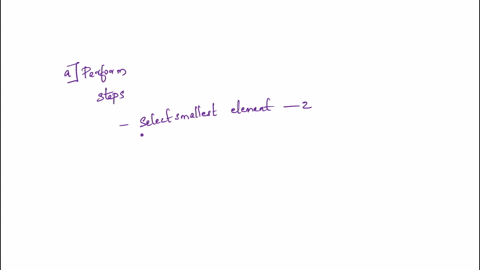 a] Perform
steps
- Select smallest element — 2